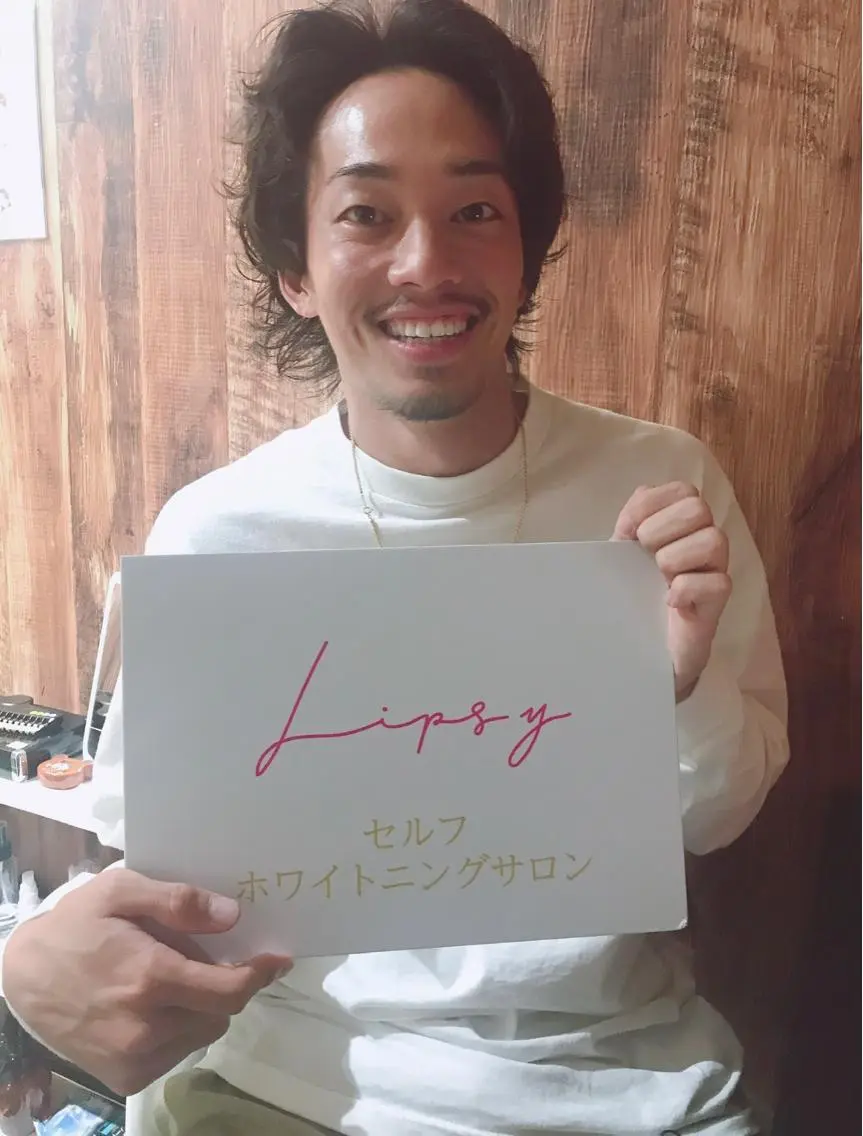 Lipsy
セルフ
ホワイトニングサロン